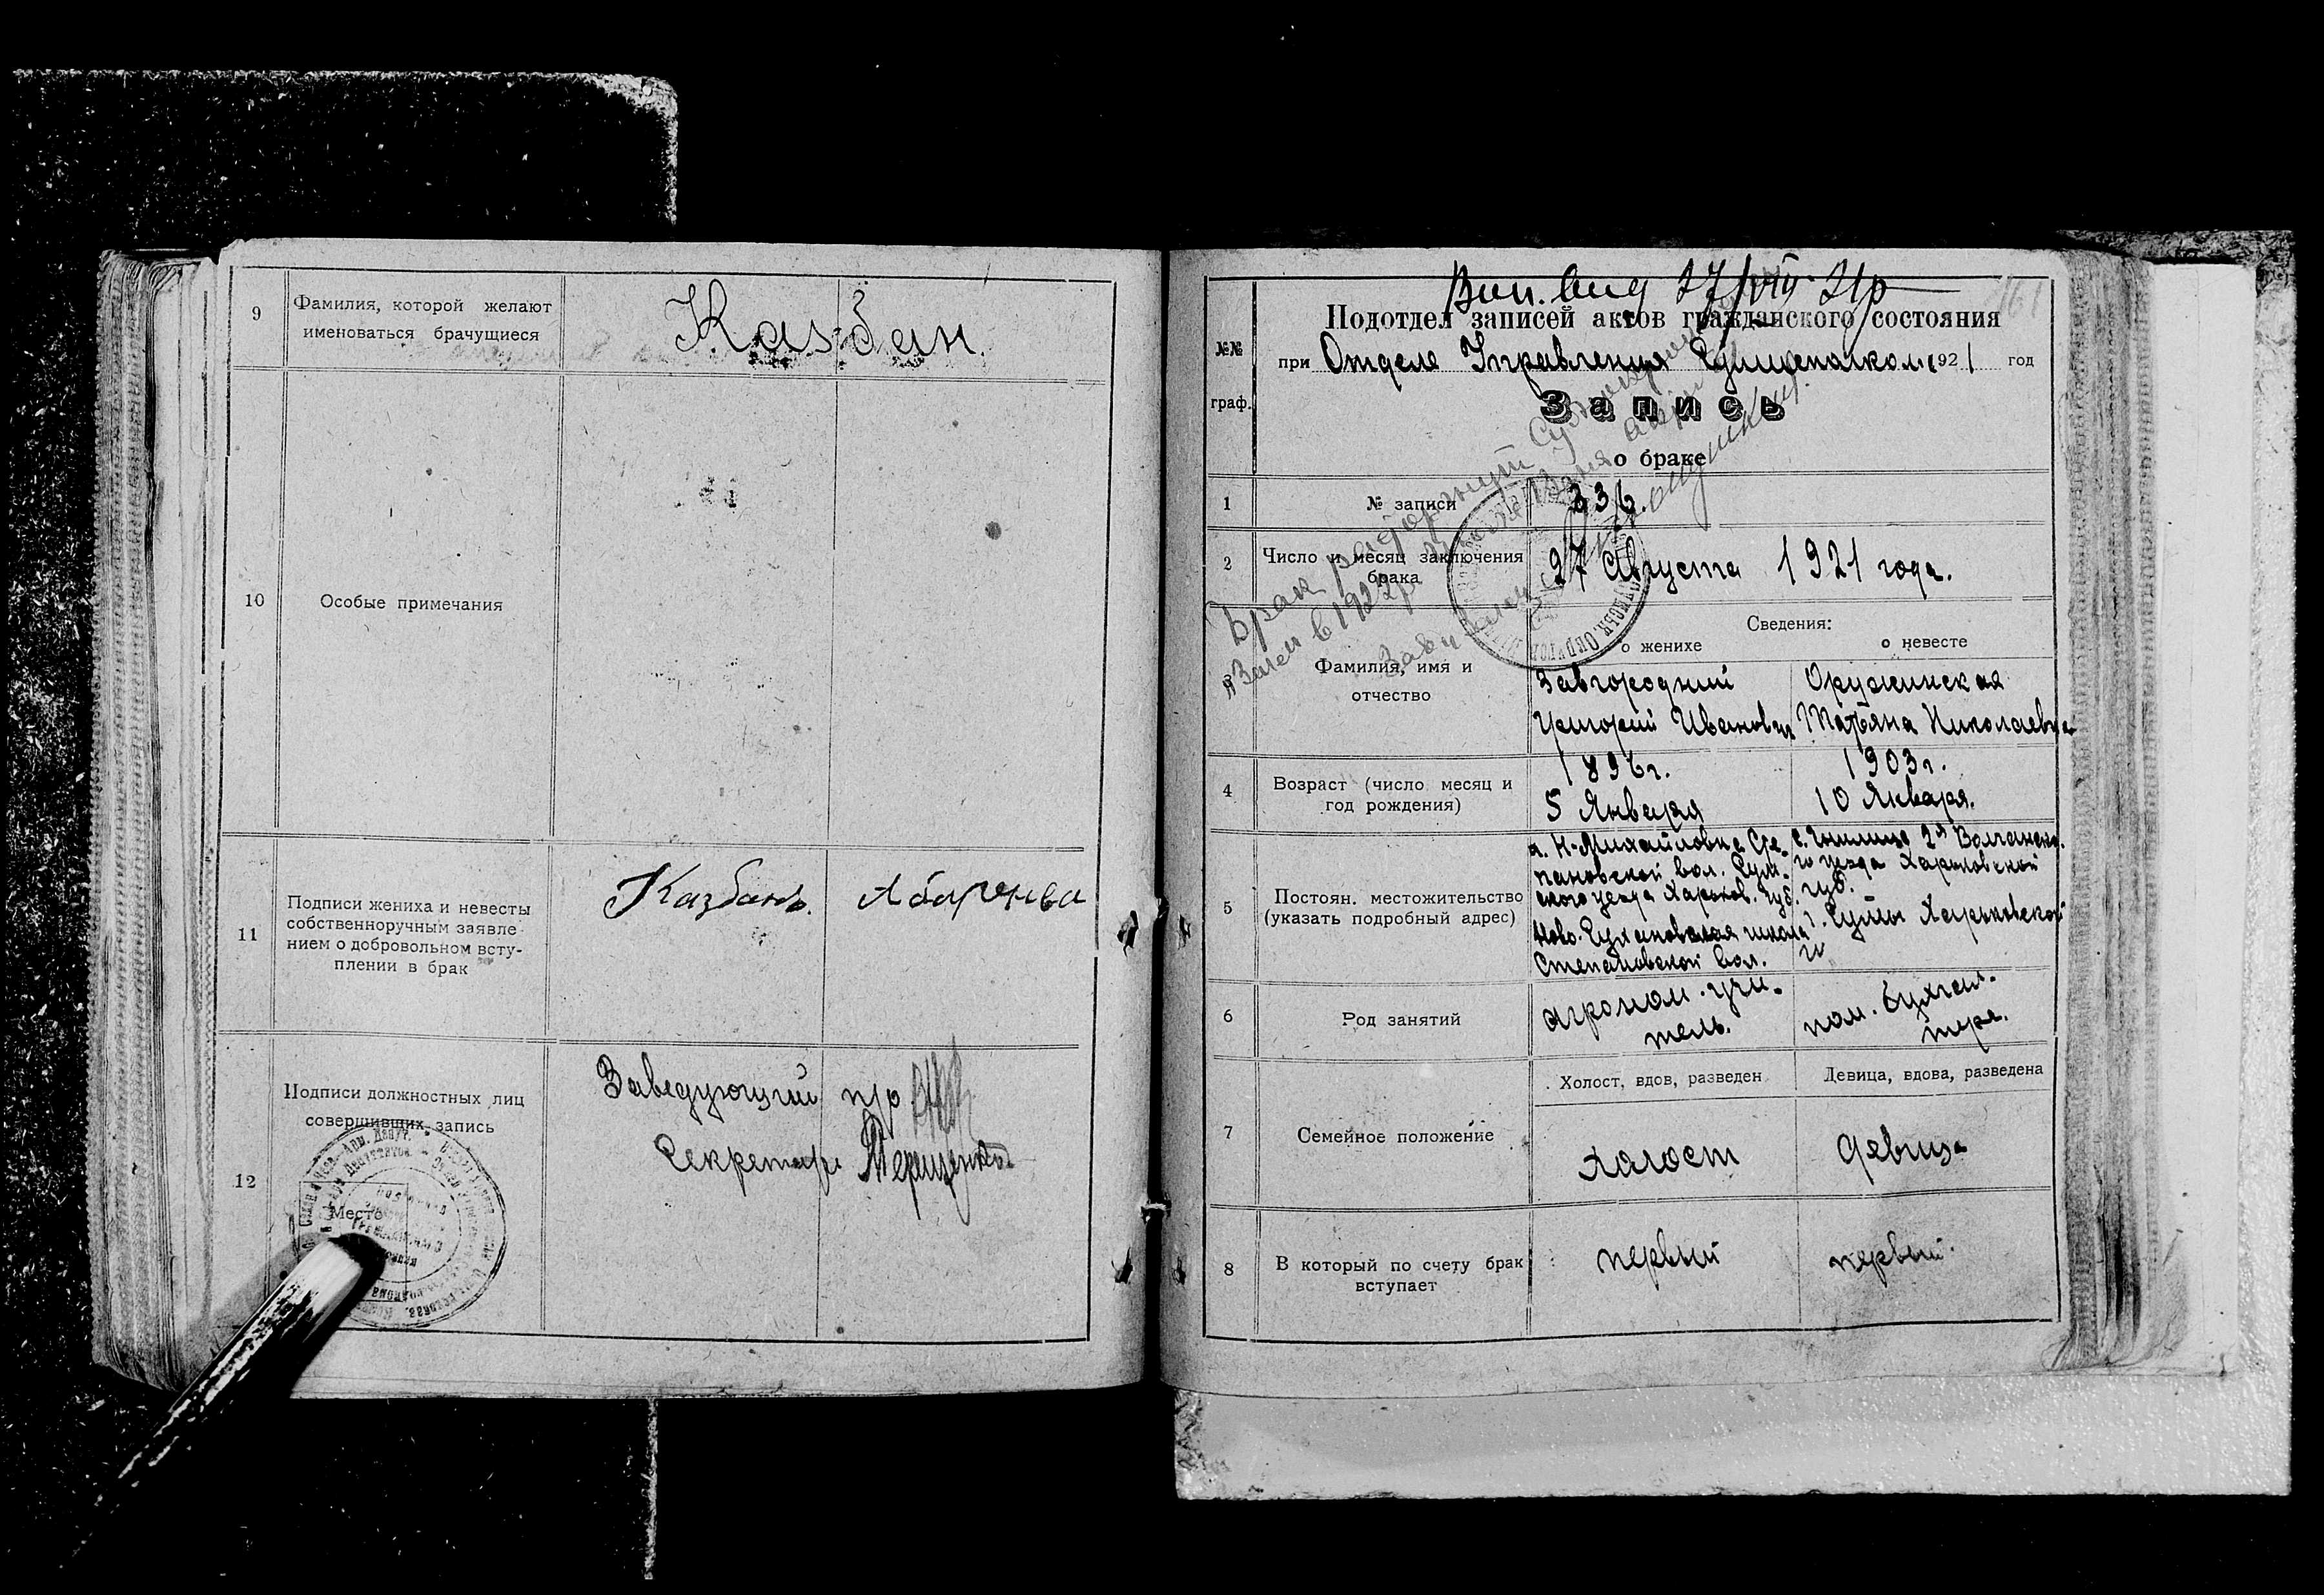 9
Фамилия, которой желают
именоваться брачущиеся
Казбан
10
Особые примечания
11
Подписи жениха и невесты
собственноручным заявле-
нием о добровольном всту-
плении в брак
Казбанъ.
12
Подписи должностных лиц
совершивших запись
Место
Заведующий п/о
Секретарь
Вып. 27/VIII 21р
Подотдел записей актов гражданского состояния
№№
граф.
при Отделе Управления 1921 год
Запись
о браке
Брак расторгнут
в 1922р
1
№ записи
336.
2
Число и месяц заключения
брака
27 Августа 1921 года.
Сведения:
о женихе
о невесте
Фамилия, имя и
отчество
Завгородний
Григорий Иванович
Оружинская
Татьяна Николаевна
4
Возраст (число месяц и
год рождения)
1896г.
5 Января
1903г.
10 Января.
5
Постоян. местожительство
(указать подробный адрес)
х. Н-Михайловка Сте-
пановской вол. Сум-
ского уезда Харьков. губ.
школа
Степановской вол.
с. 2й Волчанско-
го уезда Харьковской
губ.
г. Сумы Харьковской
6
Род занятий
агроном. учи-
тель.
пом. бухгал-
тера.
7
Семейное положение
Холост, вдов, разведен
Девица, вдова, разведена
холост
девица
8
В который по счету брак
вступает
первый
первый